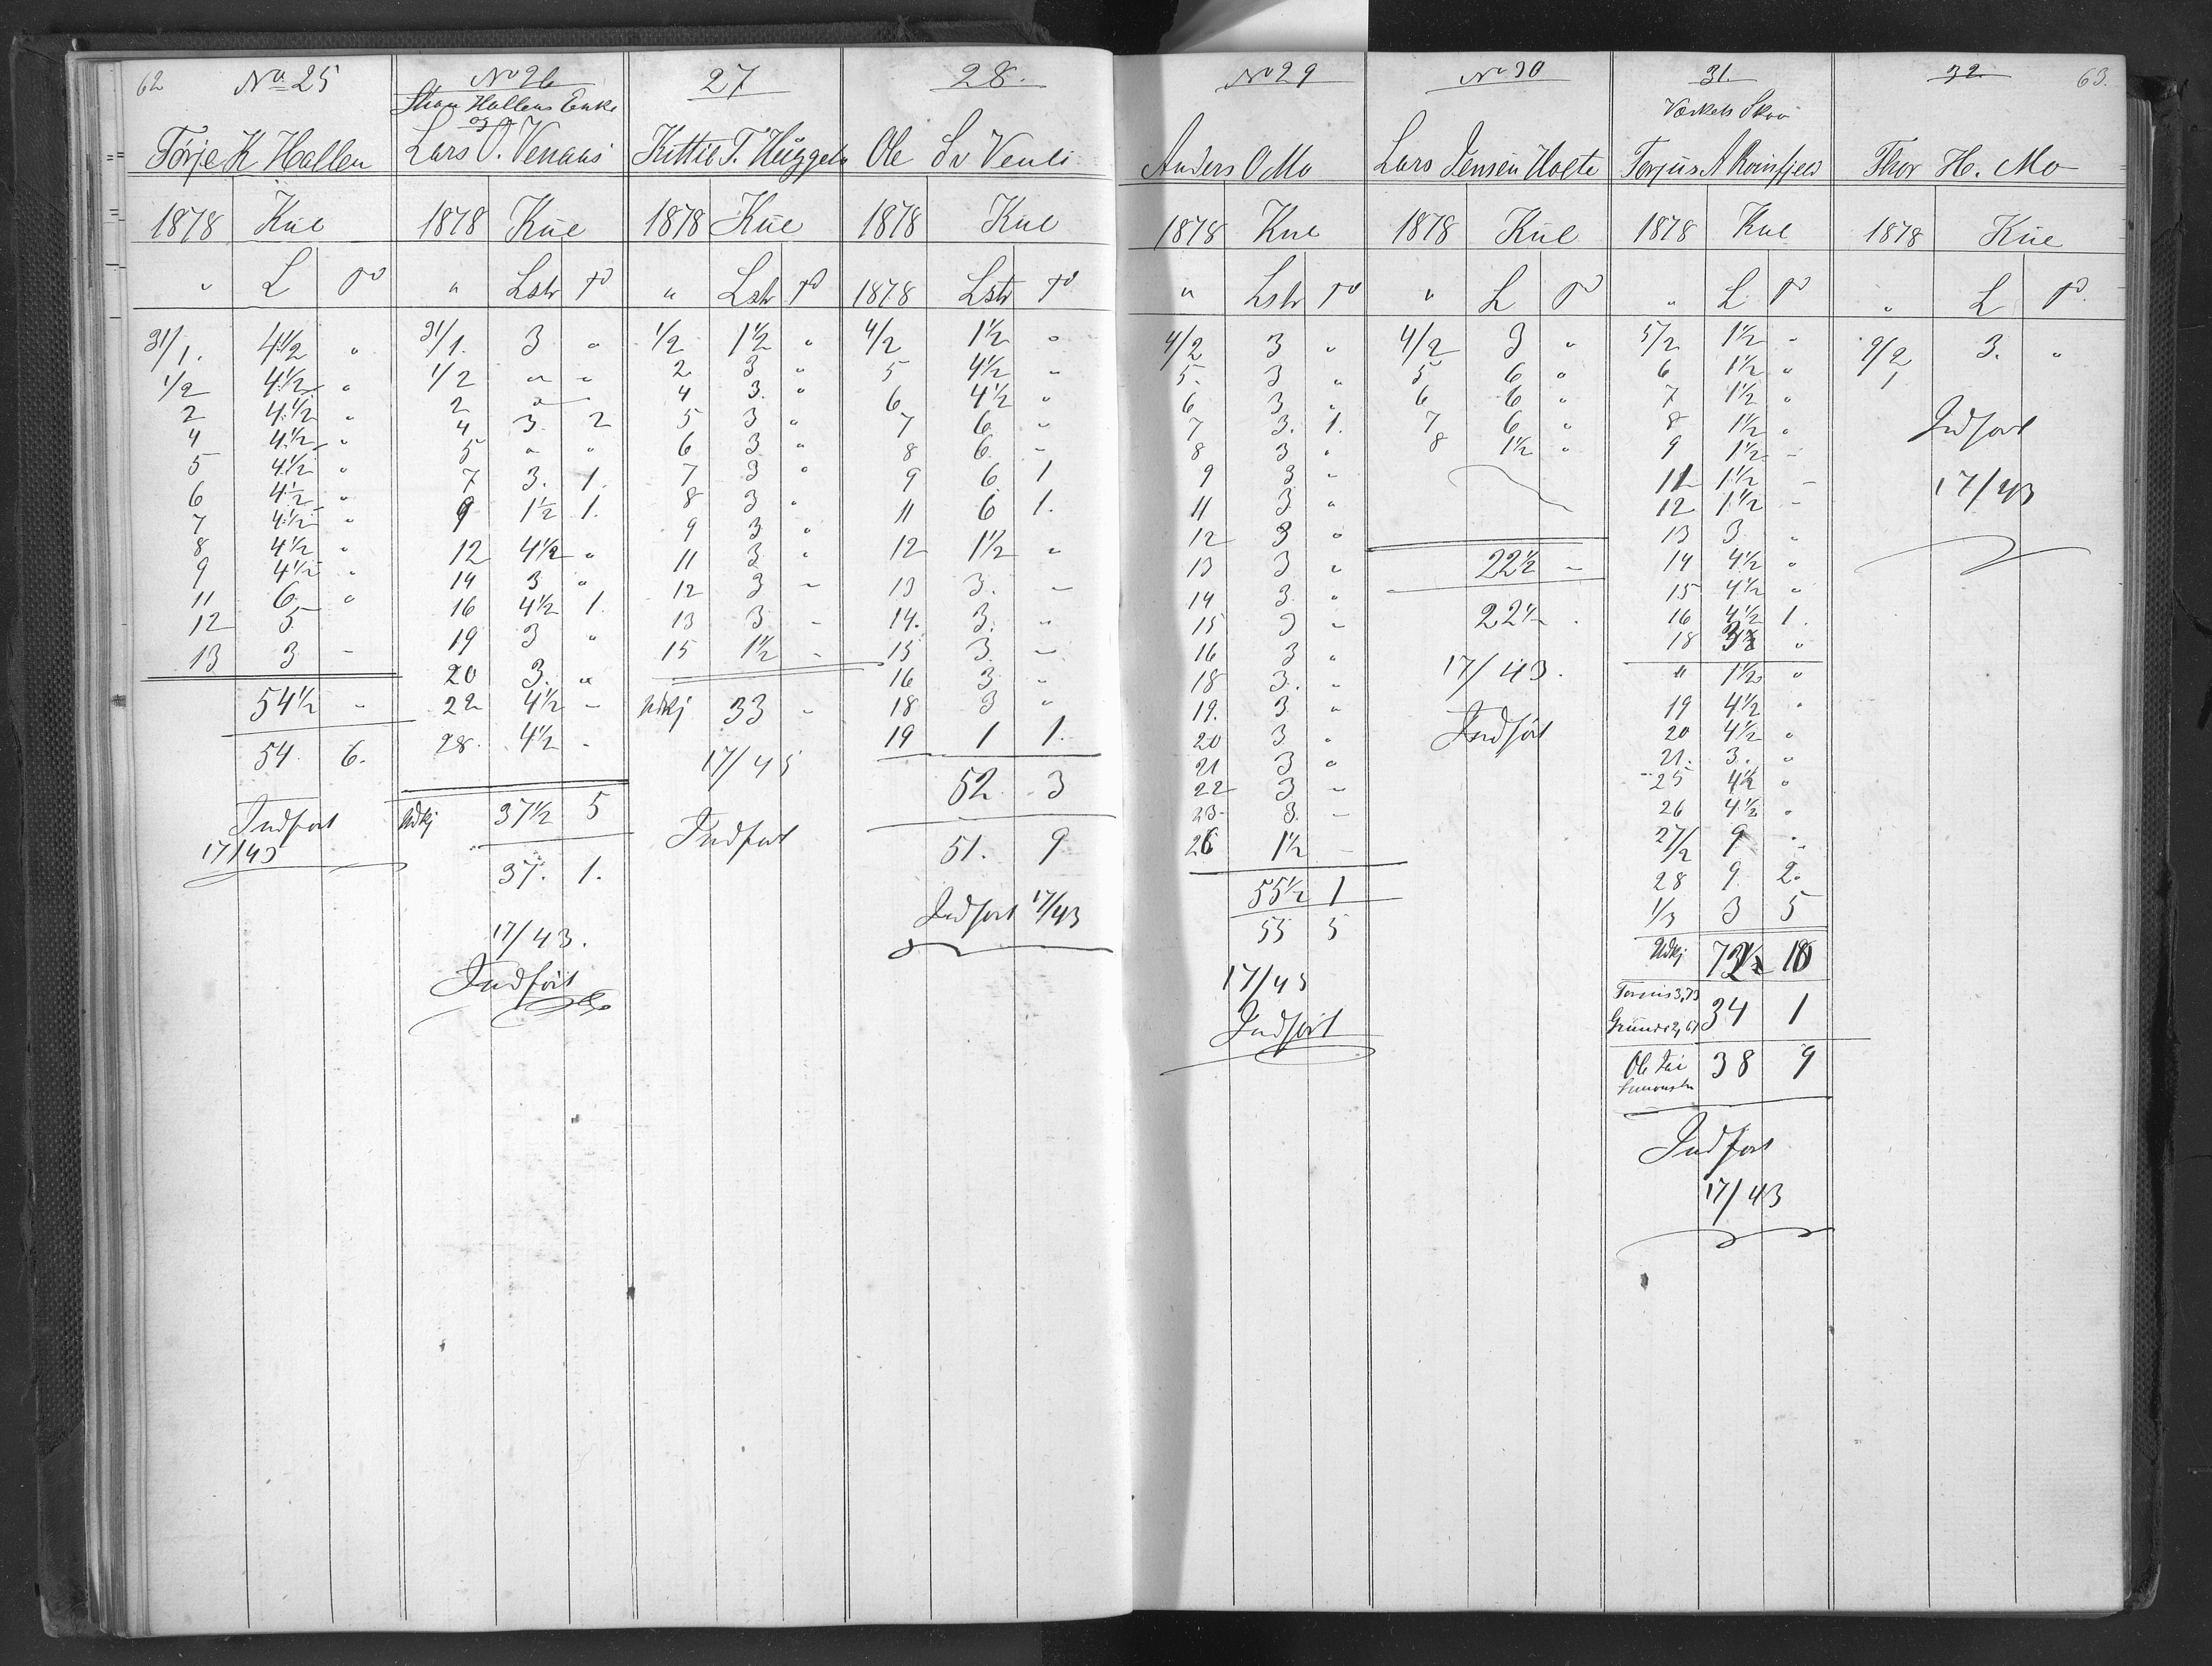 62
No 25
Törje K Hallen
1878 Kul
" L T
31/1. 4 1/2 "
1/2 4 1/2 "
2 4 1/2 "
4 4 1/2 "
5 4 1/2 "
6 4 1/2 "
7 4 1/2 "
8 4 1/2 "
9 4 1/2 "
11 6 "
12 5
13 3 -
54 1/2 -
54 6.
Indført
17/43
No 26
Hallens Enke
og
Lars O. Venaas
1878 Kul
" Lstr T
31/1. 3 "
1/2 " "
2 "
4 3. 2
5 " "
7 3. 1.
9 1 1/2 1.
12 4 1/2 "
14 3 "
16 4 1/2 1.
19 3 "
20 3. "
22 4 1/2 -
28. 4 1/2 -
Udkj 37 1/2 5
37. 1.
17/43.
Indført
27
Kittil T. Huggeln
1878 Kul
" Lstr T
1/2 1 1/2 "
2 3 "
4 3. "
5 3 "
6 3 "
7 3 "
8 3 "
9 3 "
11 3 "
12 3 -
13 3 -
15 1 1/2 -
Udkj 33 -
17/43
Indført
28.
Ole Sv Venli
1878 Kul
1878 Lstr T
4/2 1 1/2 "
5 4 1/2 "
6 4 1/2 "
7 6 "
8 6 -
9 6 1
11 6 1.
12 1 1/2 "
13 3. -
14. 3. "
15 3. -
16 3 "
18 3 "
19 1 1.
52 3
51. 9
Indført 17/43
No 29
Anders O Mo
1878 Kul
" Lstr T
4/2 3 "
5. 3 "
6 3 "
7 3. 1.
8 3 "
9 3 "
11 3 "
12 3 "
13 3 "
14 3 "
15 3 "
16 3 "
18 3. "
19. 3 "
20 3 "
21 3 "
22 3 -
23 3. -
26 1 1/2 -
55 1/2 1
55 5
17/43
Indført
No 30
Lars Jensen Holte
1878 Kul
" L T
4/2 3 "
5 6 "
6 6 "
7 6 "
8 1 1/2 "
22 1/2 -
22 1/2 .
17/43.
Indført
31.
Værkets Skov
Torjus A
1878 Kul
" L T
5/2 1 1/2 "
6 1 1/2 "
7 1 1/2 "
8 1 1/2 "
9 1 1/2 -
11 1 1/2 -
12 1 1/2 -
13 3 "
14 4 1/2 "
15 4 1/2 "
16 4 1/2 1.
18 3 "
" 1 1/2 "
19 4 1/2 "
20 4 1/2 "
21. 3. "
25 4 1/2 "
26 4 1/2 "
27/2 9 "
28 9. 2.
1/3 3 5
Udkj 72 10
34 1
Ole 38 9
Indført
17/43
32
63.
Thor H. Mo
1878 Kul
" L T.
9/2 3. "
Indført
17/43